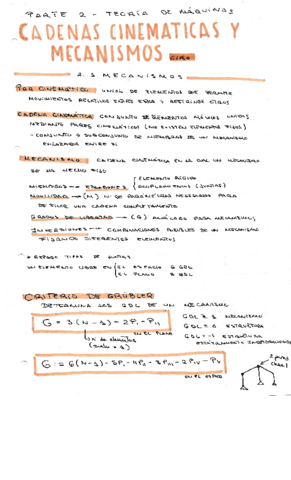 PARTE 2 - TEORÍA DE MÁQUINAS
CADENAS CINEMATICAS Y
MECANISMOS
2.1 MECANISMOS
PAR CINEMATICO: UNION DE ELEMENTOS QUE PERMITE
MOVIMIENTOS RELATIVOS ENTRE ESTOS Y RESTRINGE OTROS
CADENA CINEMATICA: CONJUNTO DE ELEMENTOS MÓVILES UNIDOS
MEDIANTE PARES CINEMATICOS (NO EXISTEN ELEMENTOS FIJOS)
- CONJUNTO O SUBCONJUNTO DE MIEMBROS DE UN MECANISMO
ENLAZADOS ENTRE SI
MECANISMO: CADENA CINEMATICA EN LA QUE UN MIEMBRO
SE HA HECHO FIJO
MIEMBROS → ESLABONES
MOVILIDAD → (M) Nº DE PARAMETROS NECESARIOS PARA
DEFINIR UNA CADENA COMPLETAMENTE
GRADOS DE LIBERTAD → (G) ANÁLOGO PARA MECANISMOS
INVERSIONES → COMBINACIONES POSIBLES DE UN MECANISMO
FIJANDO DIFERENTES ELEMENTOS
* REPASO TIPOS DE JUNTAS
UN ELEMENTO LIBRE EN EL ESPACIO 6 GDL
EL PLANO 3 GDL
CRITERIO DE GRÜBLER
DETERMINA LOS GDL DE UN MECANISMO
G = 3(N-1) - 2PI - PII
EN EL PLANO
nº de elementos
GDL ≥ 1 MECANISMO
GDL = 0 ESTRUCTURA
GDL = -1 ESTRUCTURA
ESTATICAMENTE INDETERMINADA
G = 6(N-1) - 5PI - 4PII - 3PIII - 2PIV - PV
EN EL ESPACIO
2 pares
clase I